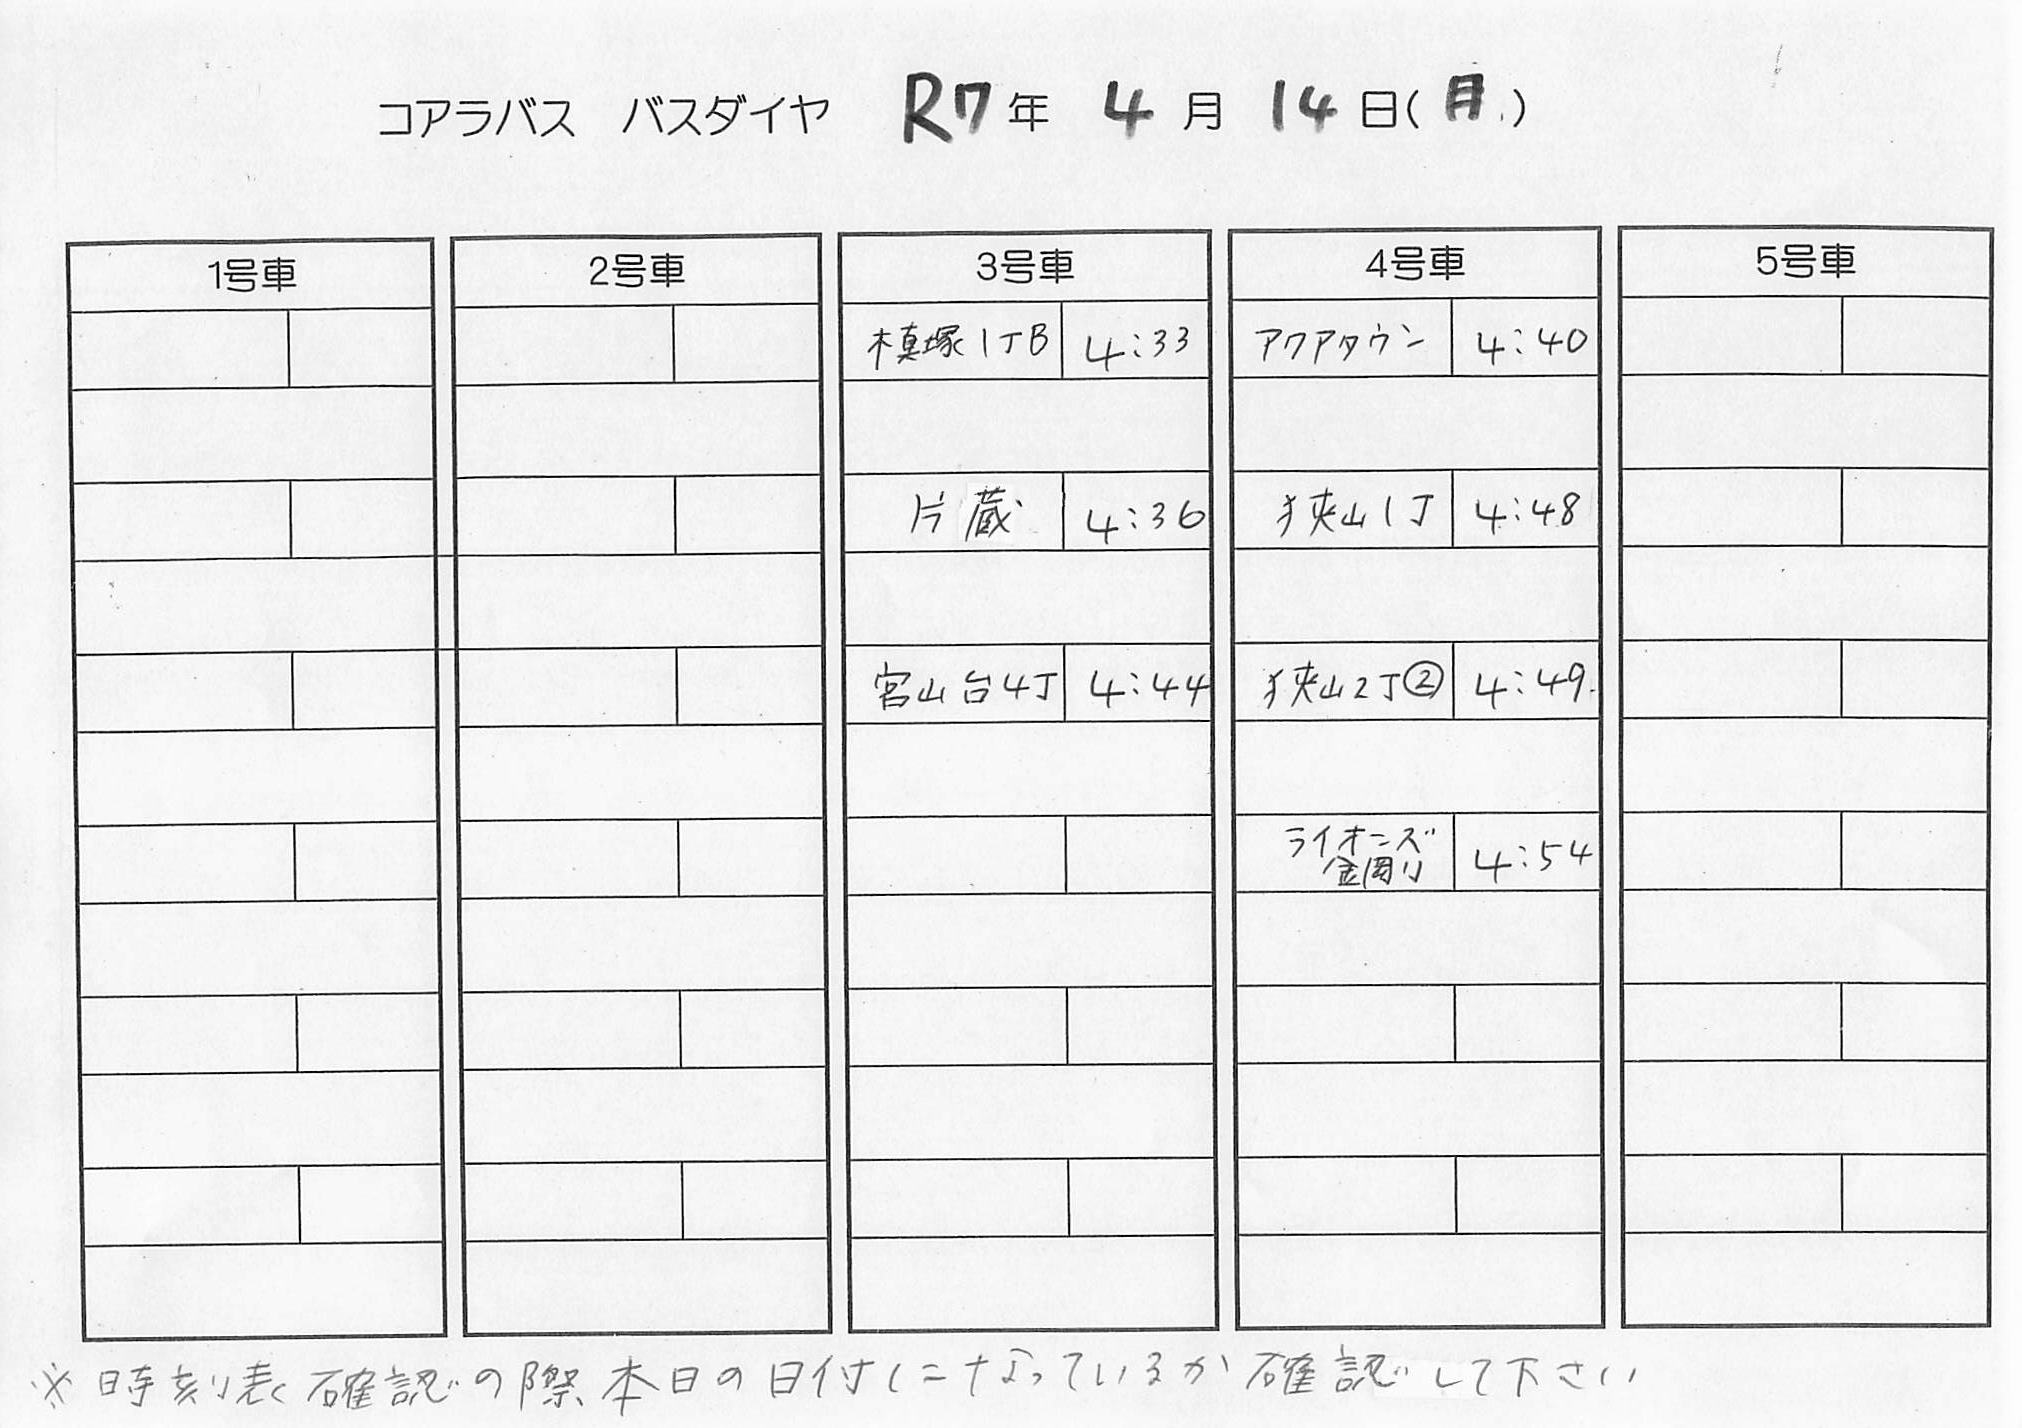 コアラバス バスダイヤ R7年 4月 14日(月)
1号車 2号車 3号車 4号車 5号車
槙塚1丁B 4:33 アクアタウン 4:40
片蔵 4:36 狭山1丁 4:48
宮山台4丁 4:44 狭山2丁② 4:49
ライオンズ
金剛 4:54
※時刻表確認の際本日の日付になっているか確認して下さい